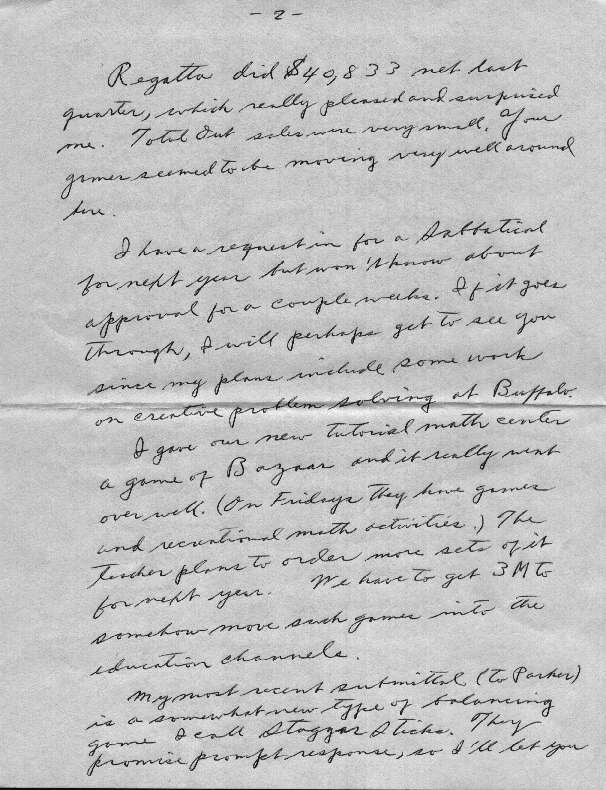 - 2 -
Regatta did $40,833 net last
quarter, which really pleased and surprised
me. Total Dut sales were very small. Your
games seemed to be moving very well around
here.
I have a request in for a Sabbatical
for next year but won't know about
approval for a couple weeks. If it goes
through, I will perhaps get to see you
since my plans include some work
on creative problem solving at Buffalo.
I gave our new tutorial math center
a game of Bazaar and it really went
over well. (On Fridays they have games
and recreational math activities.) The
teacher plans to order more sets of it
for next year. We have to get 3M to
somehow move such games into the
education channels.
My most recent submittal (to Parker)
is a somewhat new type of balancing
game I call Stagger Sticks. They
promise prompt response, so I'll let you